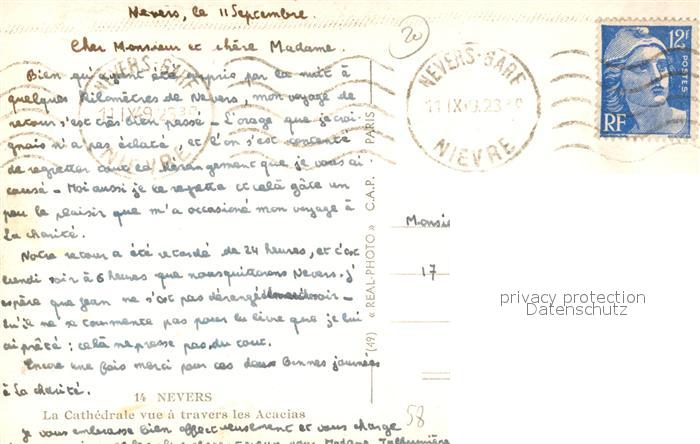 Nevers, le 11 Septembre.
Cher Monsieur et chère Madame.
Bien qu'ayant été surpris par la nuit à
quelques kilomètres de Nevers, mon voyage de
retour s'est très bien passé - L'orage que je crai-
gnais n'a pas éclaté, et l'on s'est contenté
de regretter tout le dérangement que je vous ai
causé - Moi aussi je le regrette et celà gâte un
peu le plaisir que m'a occasioné mon voyage à
La charité.
Notre retour a été retardé de 24 heures, et c'est
lundi soir à 6 heures que nous quitterons Nevers. J'
espère que Jean ne s'est pas dérangé
qu'il ne se tourmente pas pour le livre que je lui
ai prêté : celà ne presse pas du tout.
Encore une fois merci pour ces deux bonnes journées
à La charité.
14 NEVERS
La Cathédrale vue à travers les Acacias
Je vous embrasse bien affectueusement et vous charge
vous Madame
(49) « REAL-PHOTO » C.A.P. - PARIS
20
NEVERS-GARE
NIEVRE
NEVERS-GARE
NIEVRE
12F
POSTES
RF
Monsi
17
privacy protection
Datenschutz
58